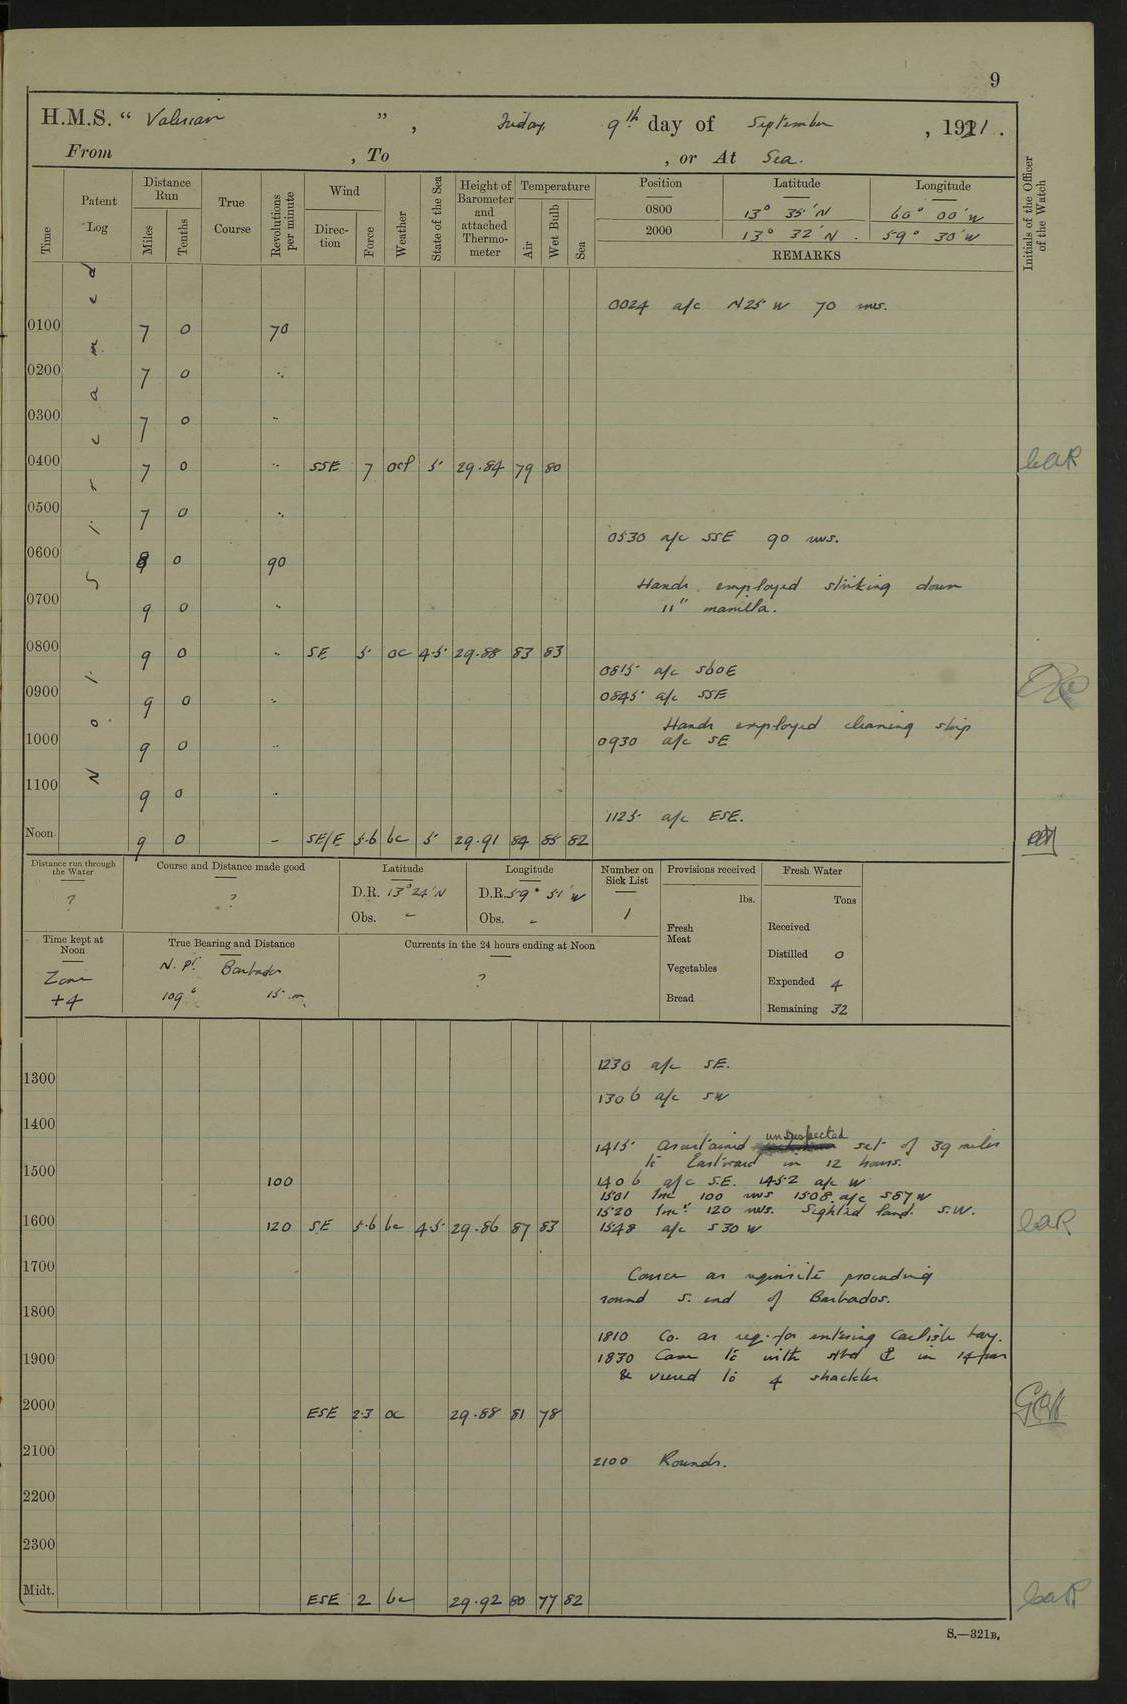 9
H.M.S. " Valerian " , Friday, 9th day of September , 1921 .
From , To , or At Sea.
Time
Patent Log
Distance Run
Miles
Tenths
True Course
Revolutions per minute
Wind
Direction
Force
Weather
State of the Sea
Height of Barometer and attached Thermometer
Temperature
Air
Wet Bulb
Sea
Position Latitude Longitude
0800 13° 35' N 60° 00' W
2000 13° 32' N. 59° 30' W
REMARKS
Initials of the Officer of the Watch
Not Streamed
0024 a/c N25 W 70 revs.
0100 7 0 70
0200 7 0 "
0300 7 0 "
0400 7 0 " SSE 7 ocp 5 29.84 79 80
0500 7 0 "
0530 a/c SSE 90 revs.
0600 8 0 90
Hands employed striking down
11" manilla.
0700 9 0 "
0800 9 0 " SE 5 oc 4.5 29.88 83 83
0815 a/c S60E
0900 9 0 "
0845 a/c SSE
Hands employed cleaning ship
1000 9 0 "
0930 a/c SE
1100 9 0 "
1125 a/c ESE.
Noon 9 0 - SE/E 5.6 bc 5 29.91 84 85 82
Distance run through the Water
?
Course and Distance made good
?
Latitude
D.R. 13° 24' N
Obs. -
Longitude
D.R. 59° 51' W
Obs. -
Number on Sick List
1
Provisions received
lbs.
Fresh Meat
Vegetables
Bread
Fresh Water
Tons
Received
Distilled 0
Expended 4
Remaining 32
Time kept at Noon
Zone
+4
True Bearing and Distance
N. pt. Barbados
109° 15 m.
Currents in the 24 hours ending at Noon
?
1230 a/c SE.
1300
1306 a/c SW
1400
unsuspected
1415 Ascertained set of 39 miles
to Eastward in 12 hours.
1500 100
1406 a/c S.E. 1452 a/c W
1501 Inc 100 revs 1508 a/c S87W
1520 Incd 120 revs. Sighted land. S.W.
1600 120 SE 5.6 bc 4.5 29.86 87 83
1548 a/c S30W
1700
Course as requisite proceeding
round S. end of Barbados.
1800
1810 Co. as req. for entering Carlisle bay.
1900
1830 Came to with stbd ⚓ in 14 fms
& veered to 4 shackles
2000 ESE 2.3 oc 29.88 81 78
2100
2100 Rounds.
2200
2300
Midt. ESE 2 bc 29.92 80 77 82
S.—321B.